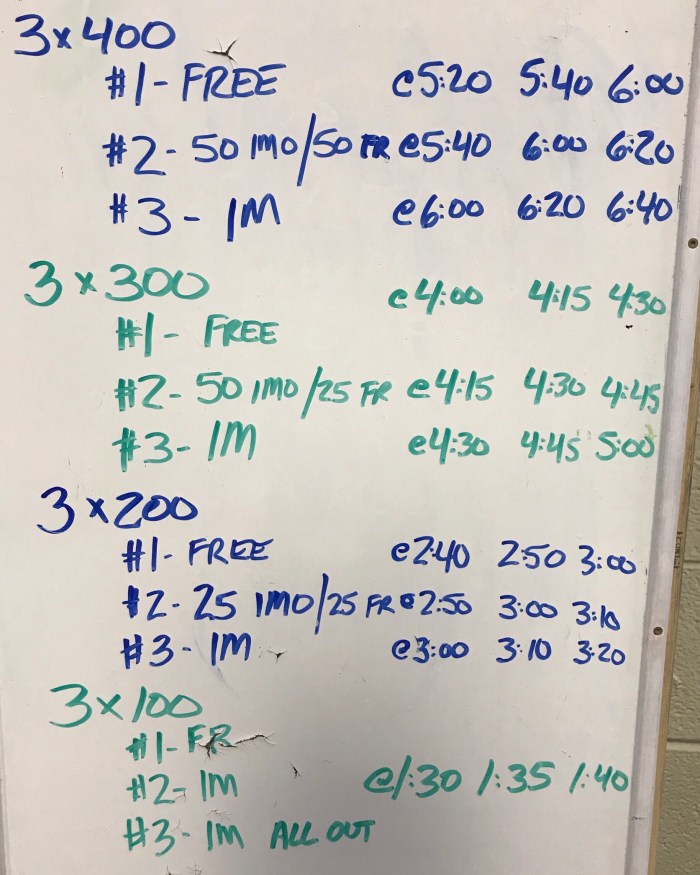 3x400
#1- FREE @5:20 5:40 6:00
#2- 50 IMO/50 FR @5:40 6:00 6:20
#3- IM @6:00 6:20 6:40
3x300 @4:00 4:15 4:30
#1- FREE
#2- 50 IMO/25 FR @4:15 4:30 4:45
#3- IM @4:30 4:45 5:00
3x200
#1- FREE @2:40 2:50 3:00
#2- 25 IMO/25 FR @2:50 3:00 3:10
#3- IM @3:00 3:10 3:20
3x100
#1- FR
#2- IM @1:30 1:35 1:40
#3- IM ALL OUT